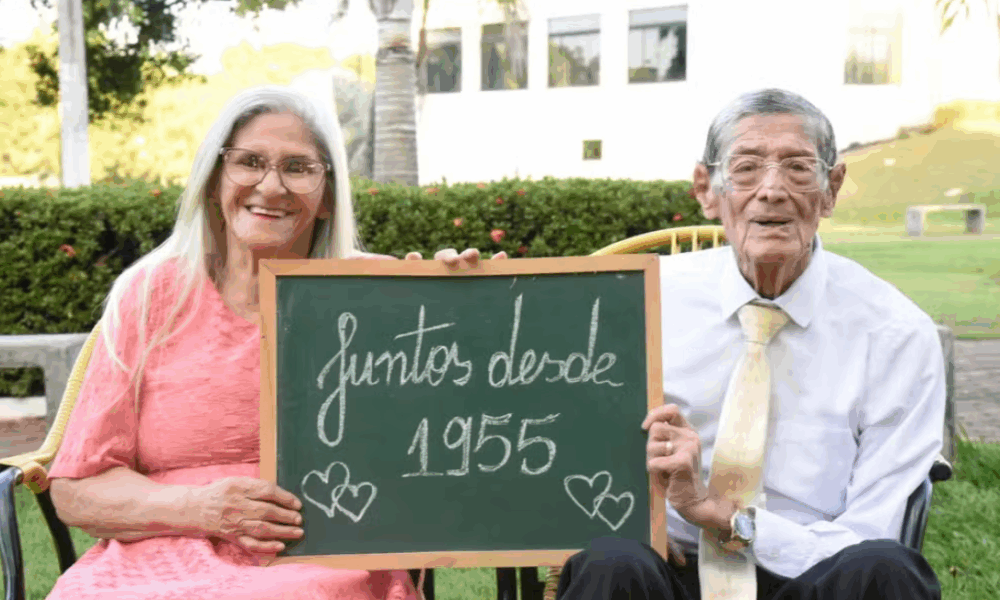 Juntos désde
1955